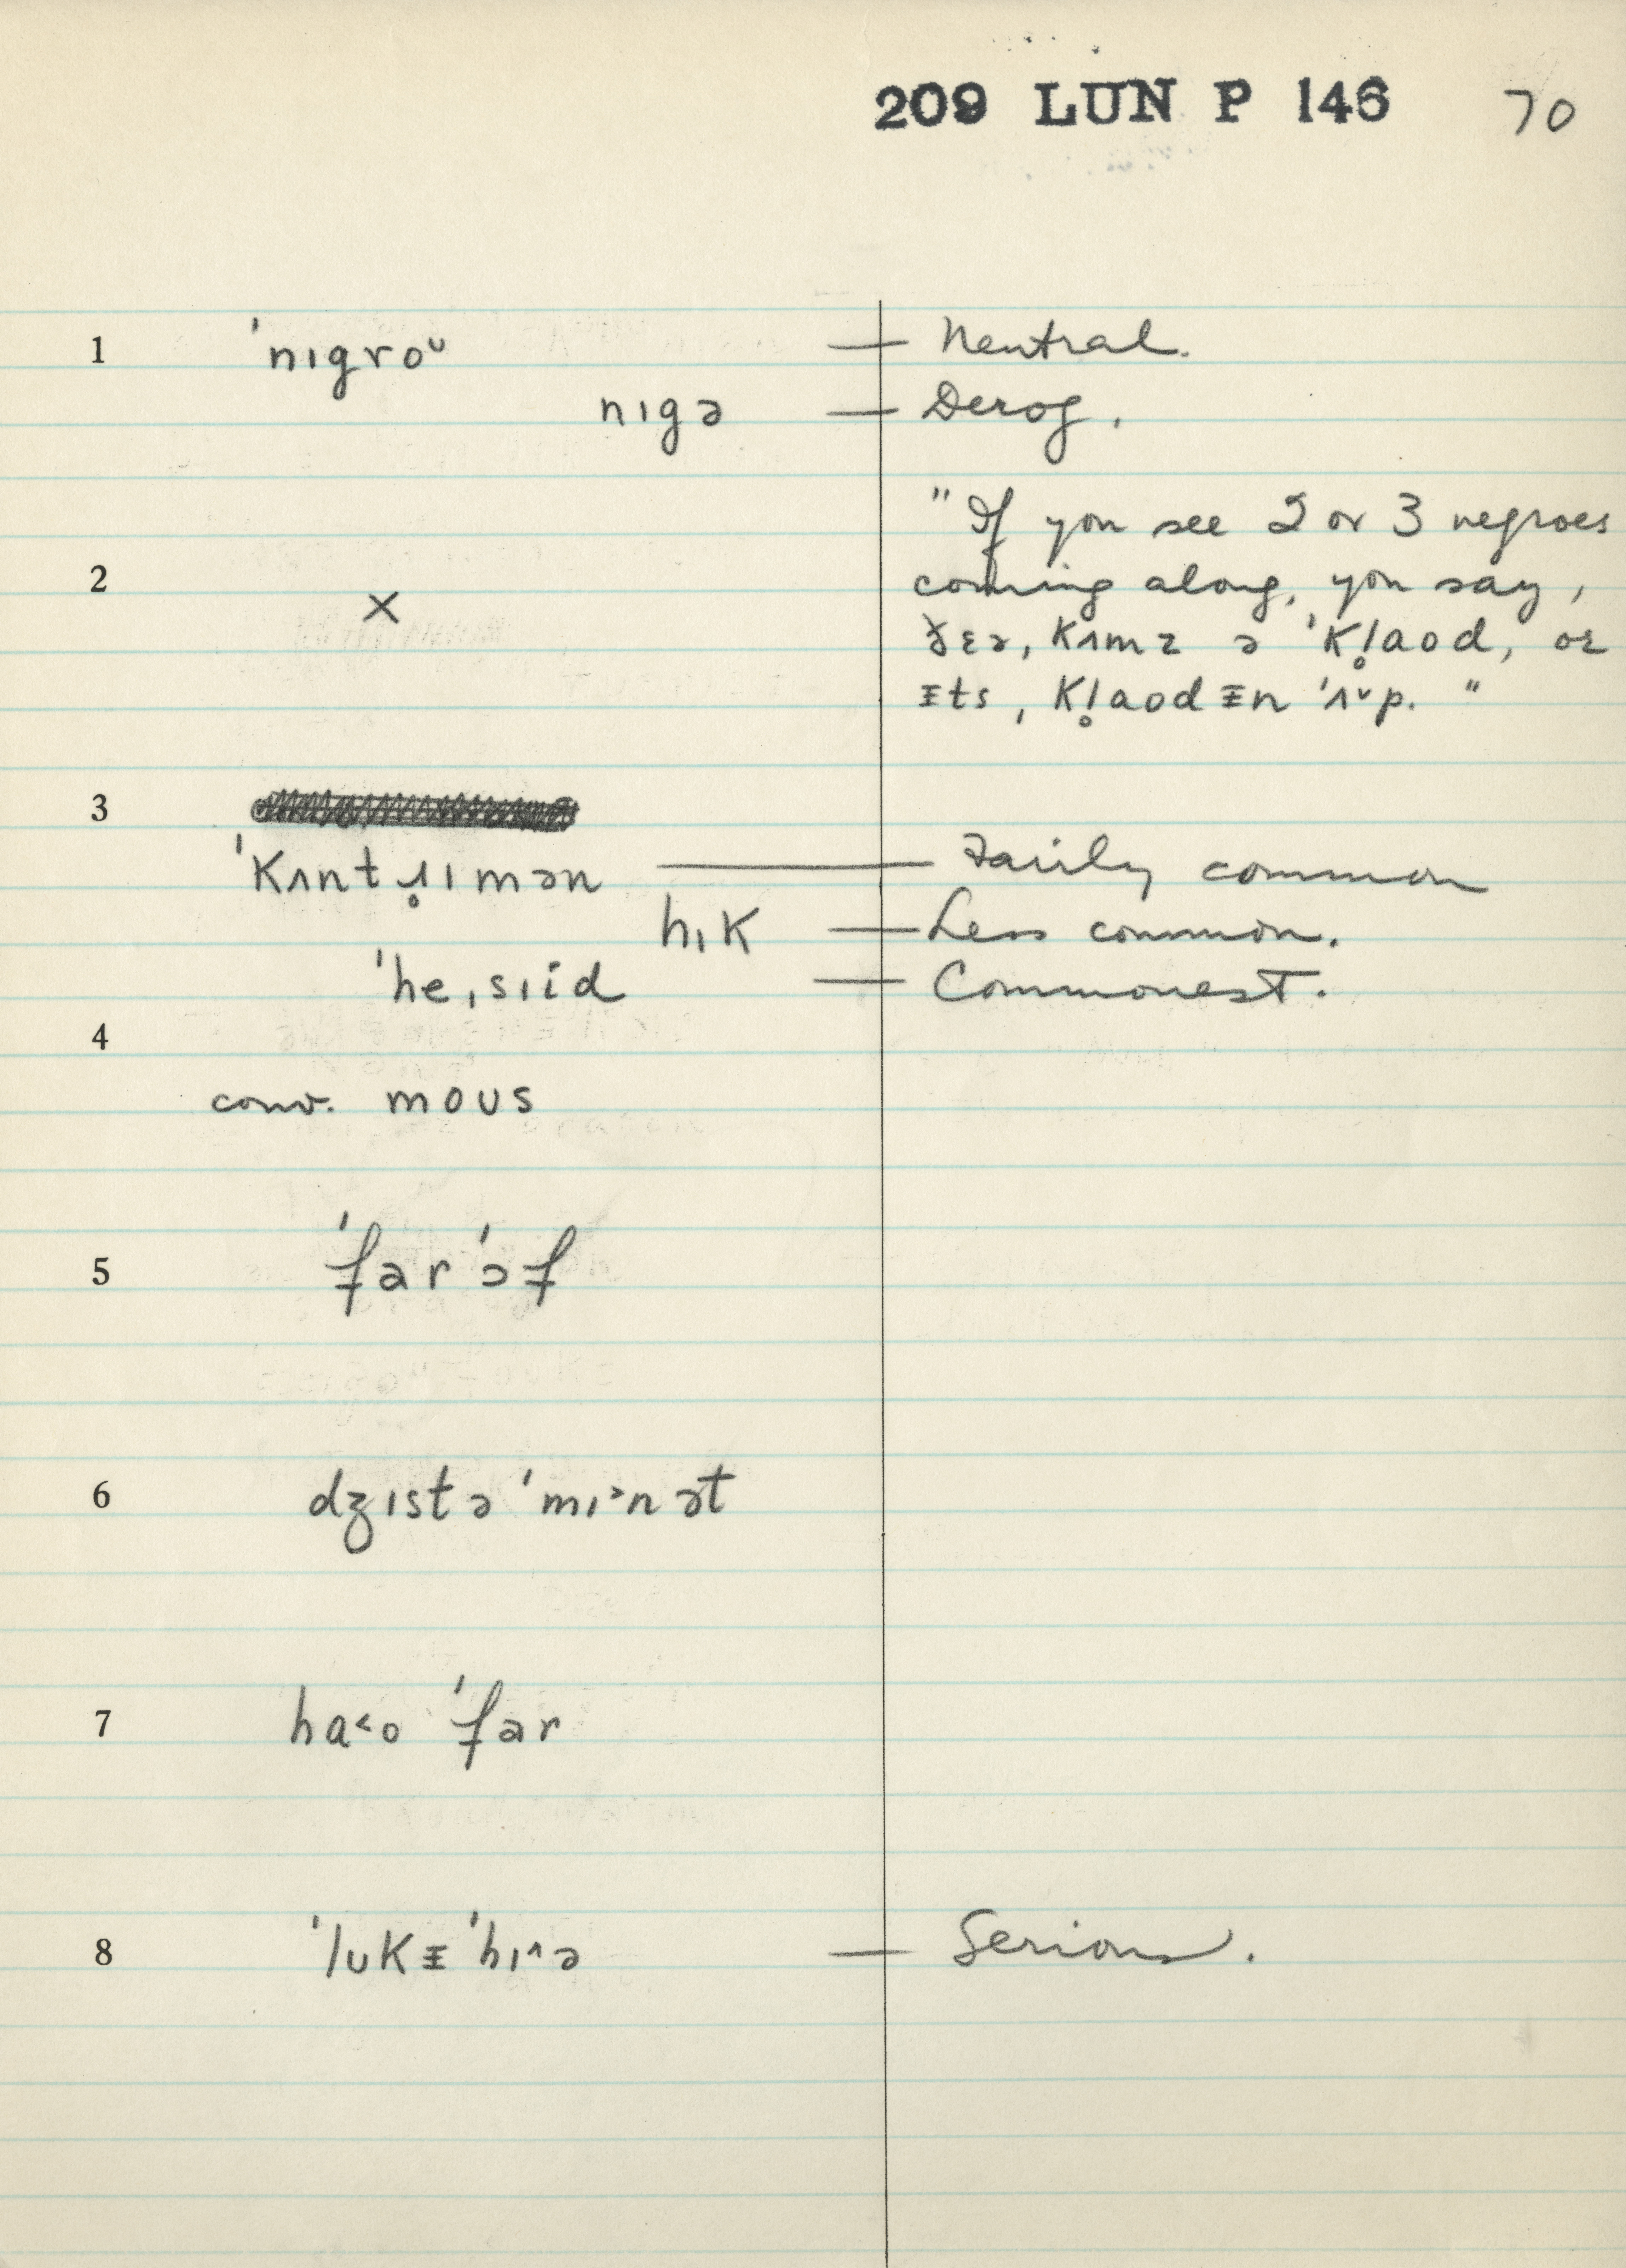 209 LUN P 146 70
1 ˈnɪgroᵁ — Neutral.
nɪgə — Derog.
"If you see 2 or 3 negroes
2 × coming along, you say,
ðɛə, kʌmz ə ˈkl̥aod, or
ᵻts, kl̥aodᵻn ˈʌ˅p."
3
ˈkʌntɹ̥ɪmən — Fairly common
hɪk — Less common.
ˈheˌsɪid — Commonest.
4
conv. moʊs
5 ˈfərˈɔf
6 dʒɪstə ˈmɪ˃nət
7 ha˂o ˈfər
8 ˈlʊkᵻ ˈhɪ˄ə — Serious.